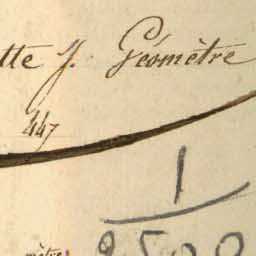 tte J. Géomètre
447
1
2500
mètre